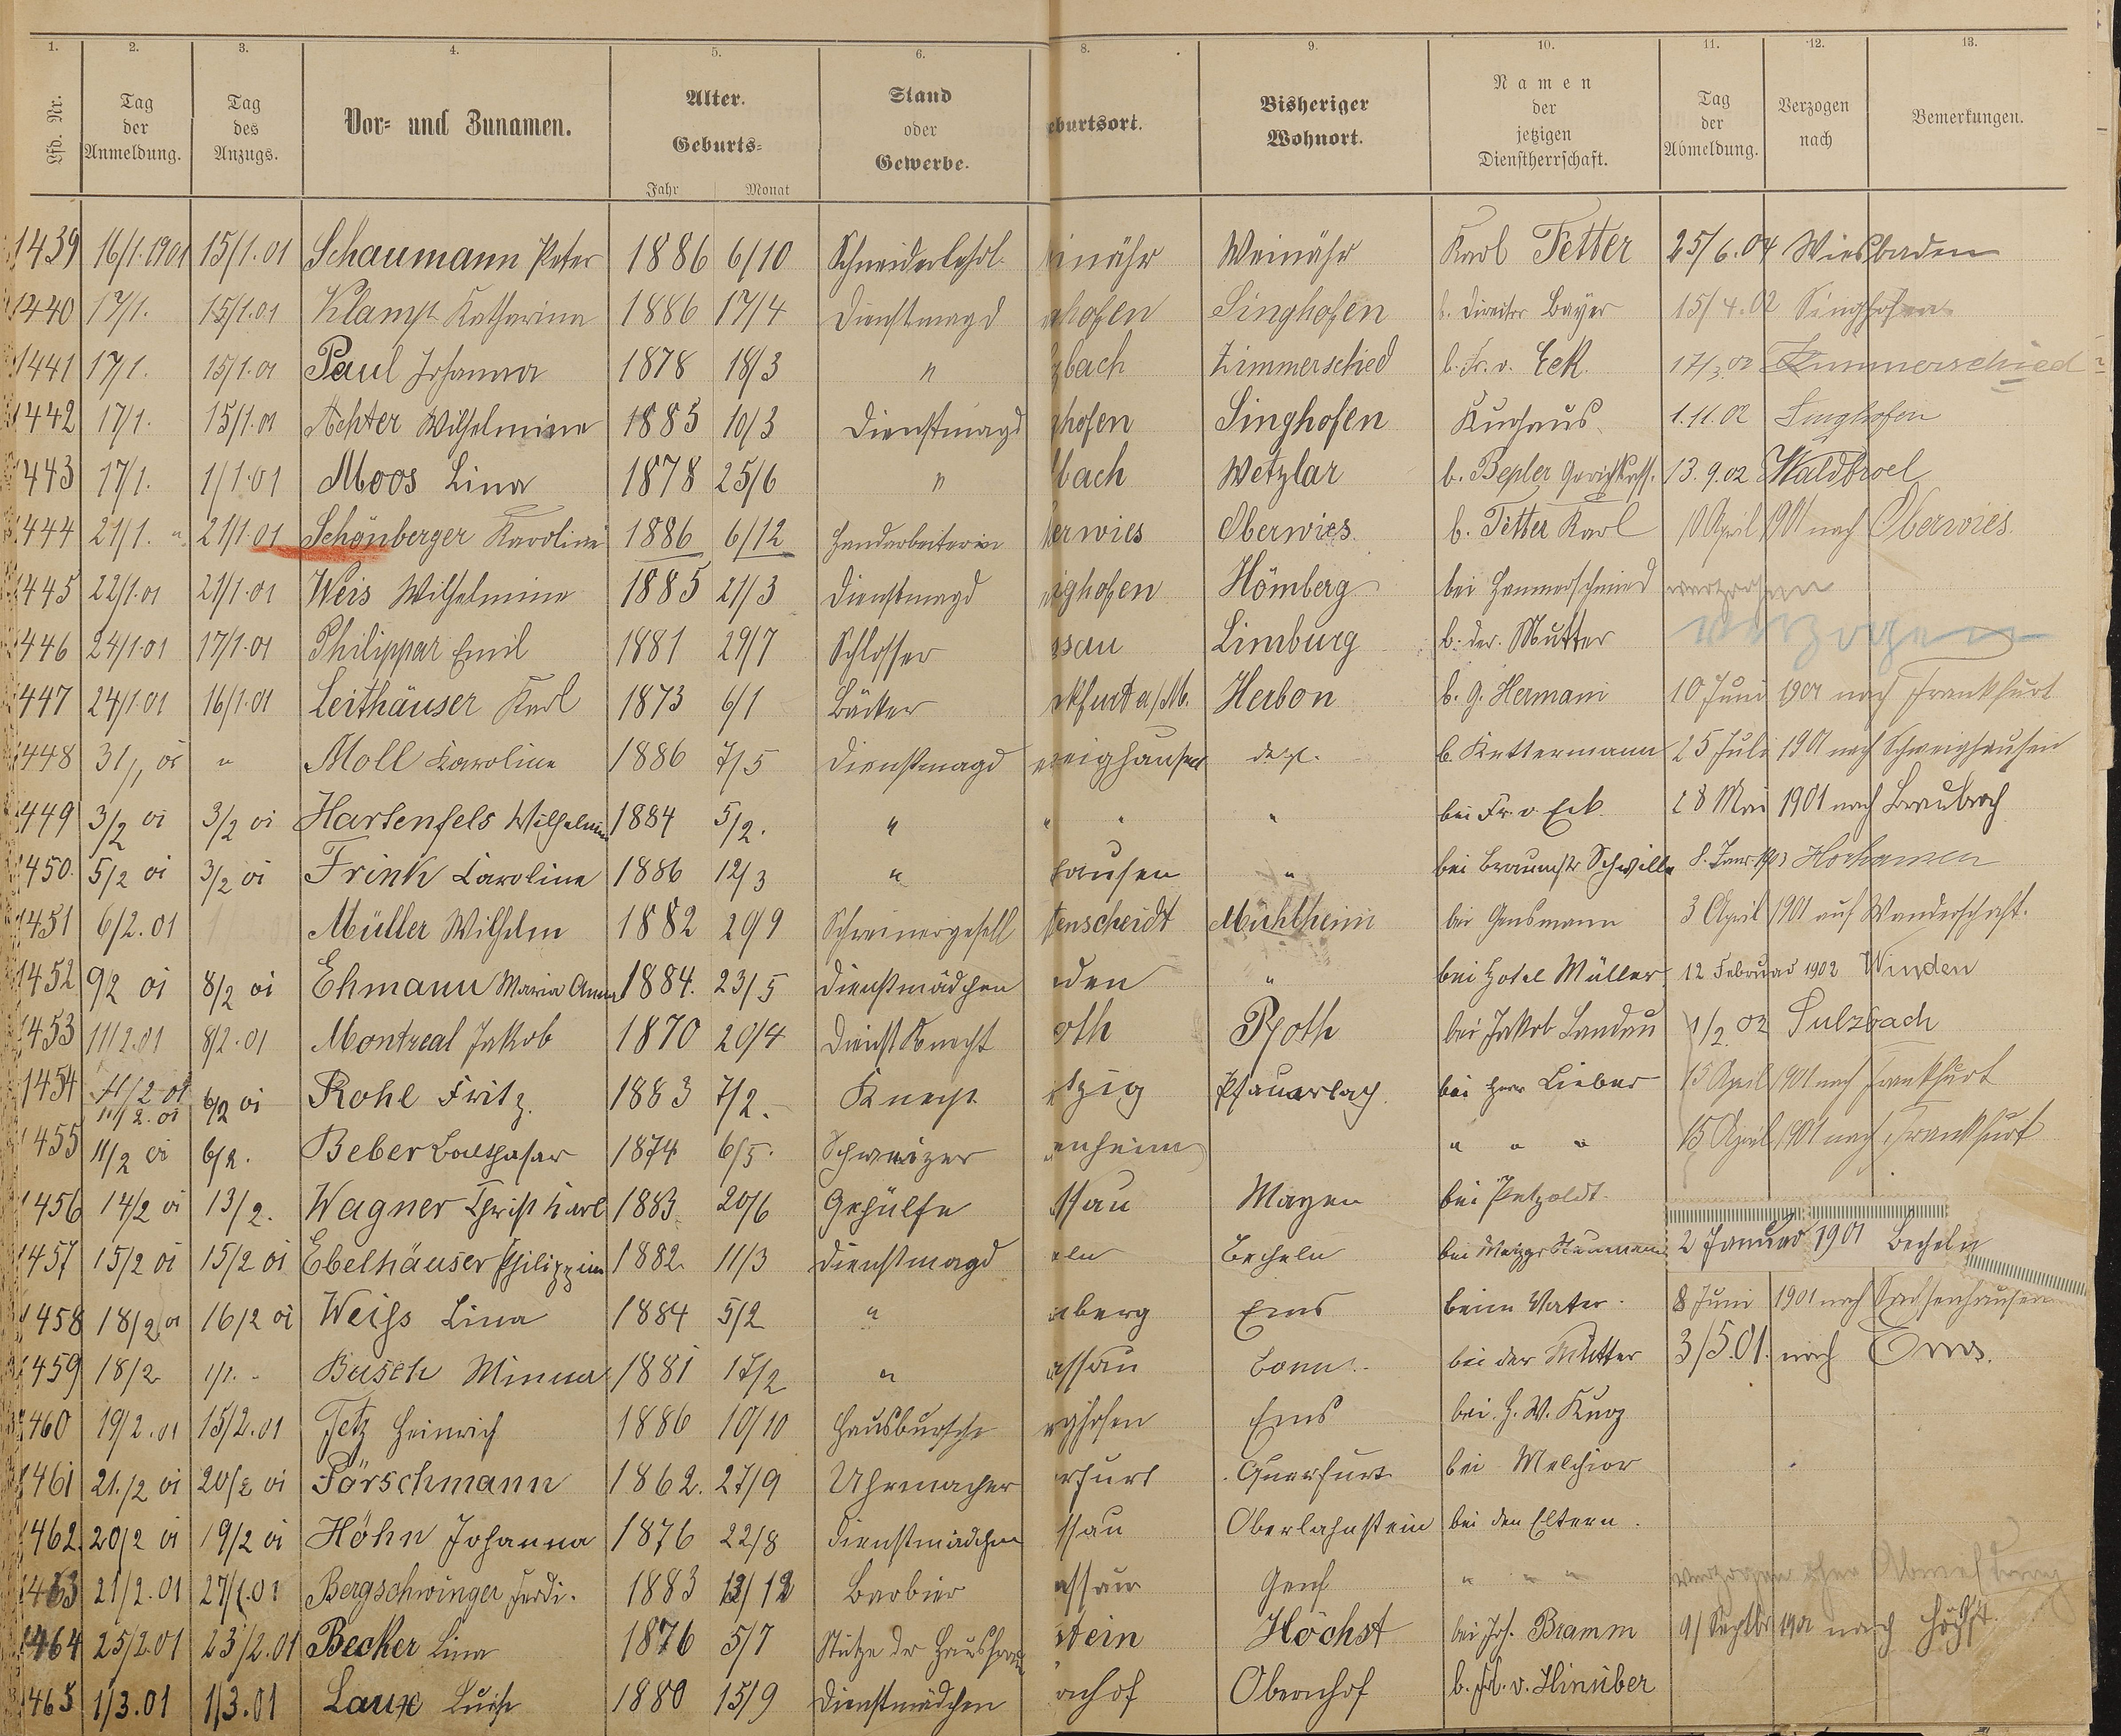 1. 2. 3. 4. 5. 6. 8. 9. 10. 11. 12. 13.
Lfd. Nr. Tag der Anmeldung. Tag des Anzugs. Vor- und Zunamen. Alter. Geburts- Jahr Monat Stand oder Gewerbe. eburtsort. Bisheriger Wohnort. Namen der jetzigen Dienstherrschaft. Tag der Abmeldung. Verzogen nach Bemerkungen.
1439 16/1.1901 15/1.01 Schaumann Peter 1886 6/10 Schneiderlehrl. inähr Weinähr Karl Fetter 25/6.04 Wiesbaden
1440 17/1. 15/1.01 Klamp Katharina 1886 17/4 Dienstmagd hofen Singhofen b. Director Bayer 15/4.02 Singhofen
1441 17/1. 15/1.01 Paul Johanna 1878 18/3 " bach Zimmerschied b. Fr. v. Eck. 17/3.02 Zimmerschied
1442 17/1. 15/1.01 Achter Wilhelmine 1885 10/3 Dienstmagd ghofen Singhofen Kurhaus 1.11.02 Singhofen
1443 17/1. 1/1.01 Moos Lina 1878 25/6 " bach Wetzlar b. Bepler 13.9.02 Waldbroel
1444 21/1. 21/1.01 Schönberger Karoline 1886 6/12 Handarbeiterin erwies Oberwies b. Fetter Karl 10 April 1901 nach Oberwies.
1445 22/1.01 21/1.01 Weis Wilhelmine 1885 21/3 Dienstmagd ighofen Hömberg bei Hammerschmied verzogen
1446 24/1.01 17/1.01 Philippar Emil 1881 29/7 Schlosser ssau Limburg b. der Mutter verzogen
1447 24/1.01 16/1.01 Leithäuser Karl 1873 6/1 Bäcker kfurt a/M. Herbon b. G. Hermani 10 Juni 1901 nach Frankfurt
1448 31/1 01 " Moll Karoline 1886 7/5 Dienstmagd eighausen desgl. b. Kettermann 25 Juli 1901 nach Schweighausen
1449 3/2 01 3/2 01 Hartenfels Wilhelmine 1884 5/2. " " " " bei Fr. v Eck. 28 Mai 1901 nach Braubach
1450. 5/2 01 3/2 01 Frink Karoline 1886 12/3 " hausen " bei Braumstr Schwille 8. Janr. 1903
1451 6/2.01 Müller Wilhelm 1882 29/9 Schreinergesell tenscheidt Mühlheim bei Gensmann 3 April 1901 auf Wanderschaft.
1452 9/2 01 8/2 01 Ehmann Maria Anna 1884. 23/5 Dienstmädchen den " bei Hotel Müller 12 Februar 1902 Winden
1453 11/2.01 8/2.01 Montreal Jakob 1870 20/4 Dienstknecht oth Roth bei Jakob Landau 1/2.02 Sulzbach
1454 11/2.01 11/2.01 6/2 01 Rohl Fritz. 1883 7/2. Knecht tzig bei Herr Lieber 15 April 1901 nach Frankfurt
1455 11/2 01 6/2. Beber Balthasar 1874 6/5. Schweizer enheim " " " 15 April 1901 nach Frankfurt
1456 14/2 01 13/2. Wagner Christ Karl 1883. 20/6 Gehülfe ssau Mayen bei Petzoldt
1457 15/2 01 15/2 01 Ebelhäuser Philippine 1882. 11/3 Dienstmagd eln Becheln bei Metzger Neumann 2 Januar 1901 Becheln
1458 18/2 01 16/2 01 Weiß Lina 1884 5/2 " berg Ems beim Vater. 8 Juni 1901 nach Sachsenhausen
1459 18/2 1/1. Busch Minna 1881 17/2 " assau Bonn bei der Mutter 3/5.01. nach Ems.
1460 19/2.01 15/2.01 Fetz Heinrich 1886 10/10 Hausbursche ghofen Ems bei H. W. Kurz
1461 21./2 01 20/2 01 Pörschmann 1862. 27/9 Uhrmacher rfurt Querfurt bei Melchior
1462. 20/2 01 19/2 01 Höhn Johanna 1876 22/8 Dienstmädchen ssau Oberlahnstein bei den Eltern.
1463 21/2.01 27/1.01 Bergschwinger Ferdi. 1883 12/12 Barbier assau Genf " " " verzogen ohne Abmeldung
1464 25/2.01 23/2.01 Becker Lina 1876 5/7 Stütze der Hausfrau stein Höchst bei Joh. Bramm 9/Septbr 1901 nach Höchst.
1465 1/3.01 1/3.01 Laux Luise 1880 15/9 Dienstmädchen rnhof Obernhof b. Frl. v. Hinüber